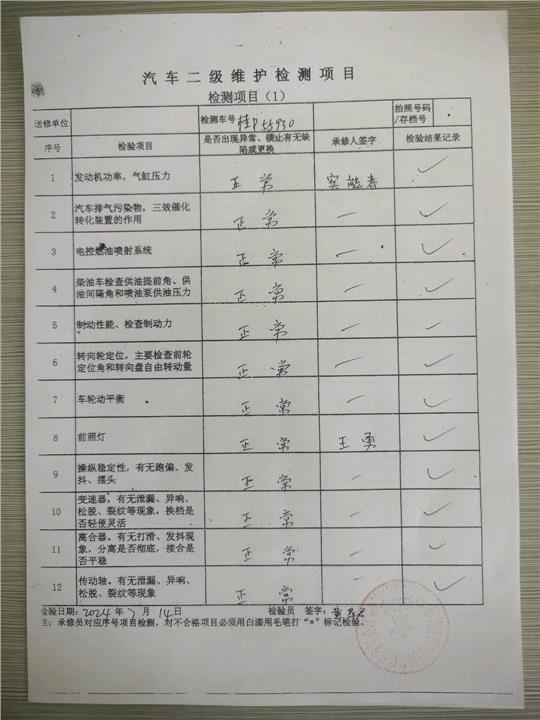 汽车二级维护检测项目
检测项目（1）
送修单位 检测车号 拍照号码/存档号
序号 检验项目 是否出现异常、锁止有无缺陷或更换 承修人签字 检验结果记录
1 发动机功率，气缸压力 正常 ✓
2 汽车排气污染物，三效催化转化装置的作用 正常 — ✓
3 电控燃油喷射系统 正常 — ✓
4 柴油车检查供油提前角、供油间隔角和喷油泵供油压力 正常 — ✓
5 制动性能、检查制动力 正常 — ✓
6 转向轮定位，主要检查前轮定位角和转向盘自由转动量 正常 — ✓
7 车轮动平衡 正常 — ✓
8 前照灯 正常 王勇 ✓
9 操纵稳定性，有无跑偏、发抖、摆头 正常 — ✓
10 变速器。有无泄漏、异响、松脱、裂纹等现象，换档是否轻便灵活 正常 — ✓
11 离合器。有无打滑、发抖现象，分离是否彻底，接合是否平稳 正常 — ✓
12 传动轴。有无泄漏、异响、松脱、裂纹等现象 正常 — ✓
验日期：2024年 月14日 检验员 签字：
主：承修员对应序号项目检测，对不合格项目必须用白漆用毛笔打“×”标记检验。